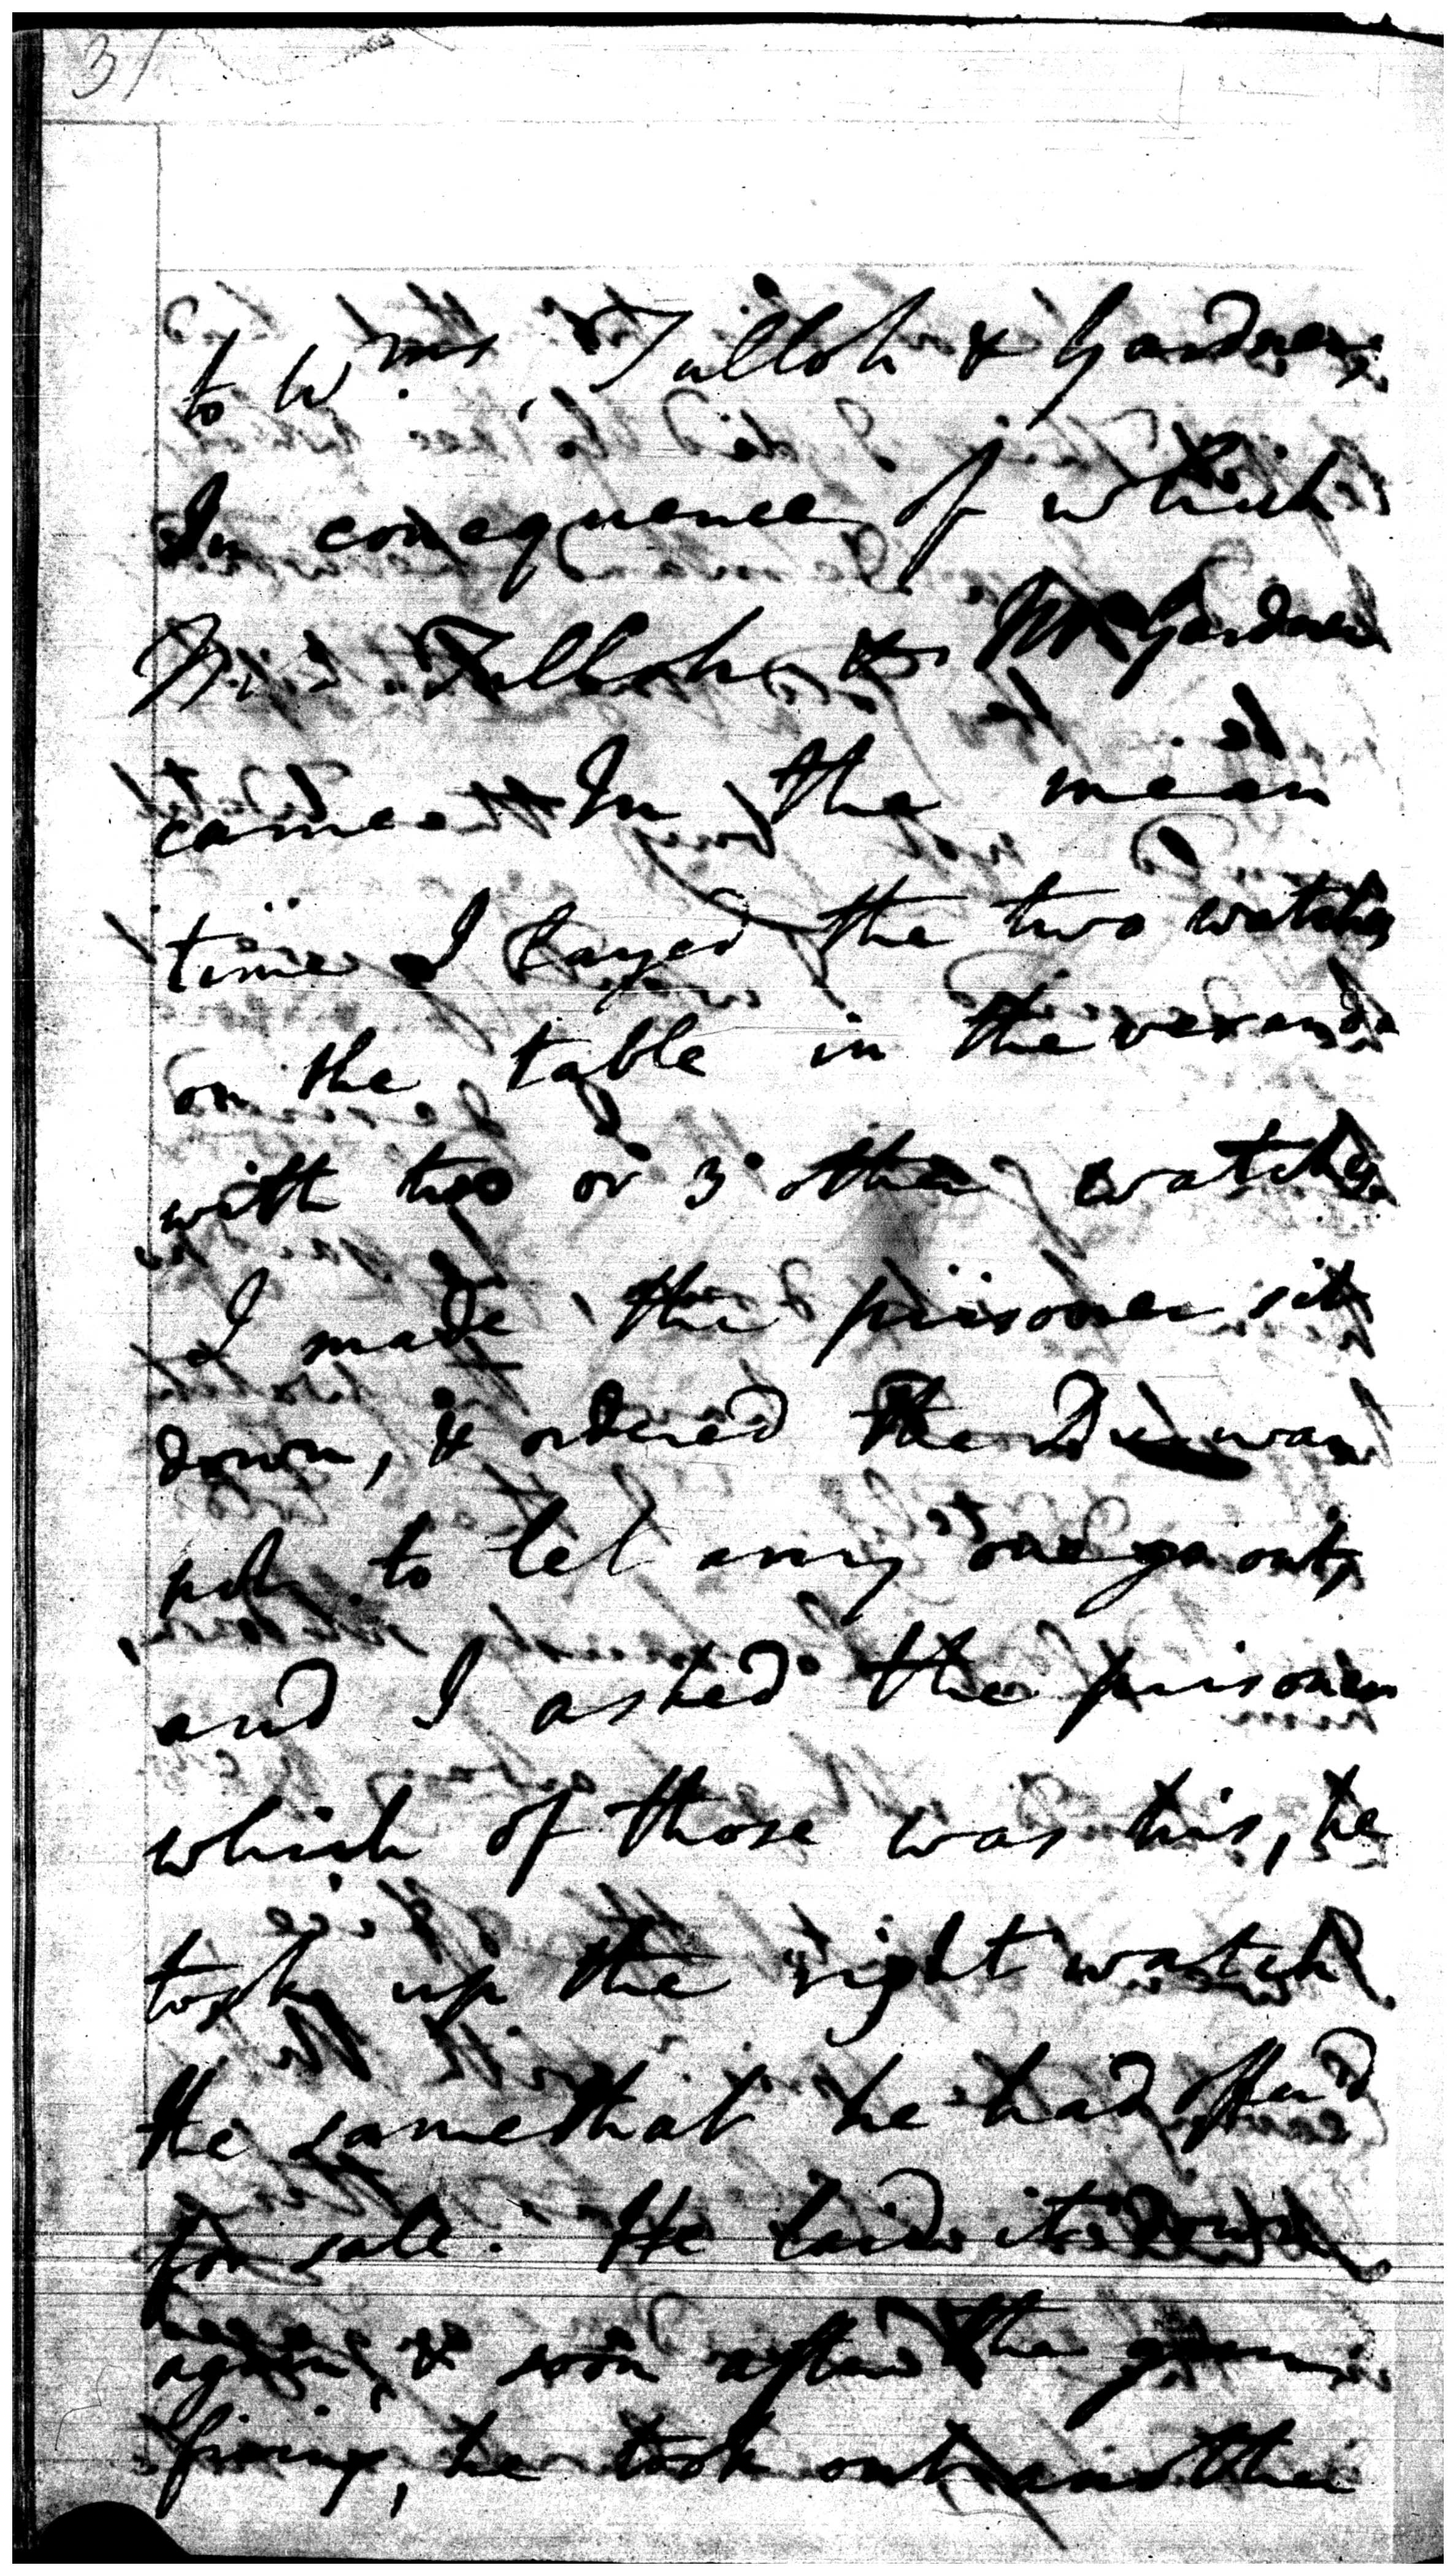 31
to Wms, Tulloh & Gardner,
In consequence of which
Mr Tulloh & Mr Gardner
came. In the mean
time I layed the two watches
on the table in the veranda
with two or 3 other watches.
I made the prisoner sit
down, & ordered the
not to let any one go out,
and I asked the prisoner
which of those was his, he
took up the right watch
the same that he had offer'd
for sale. He laid it down
again, & soon after the gun
firing, he took out another